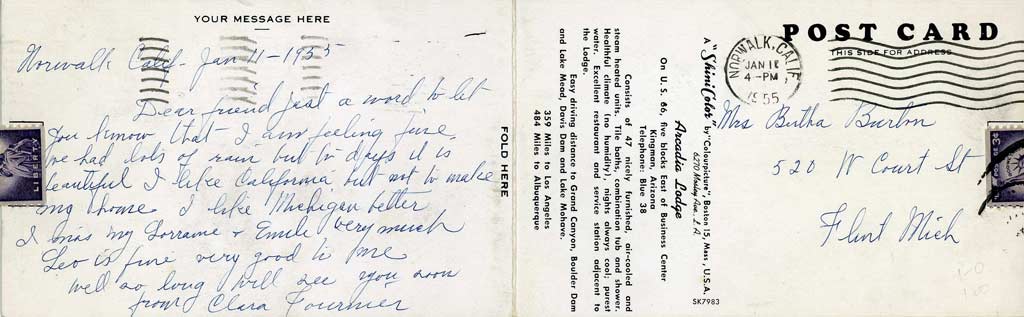 YOUR MESSAGE HERE
Norwalk Calif- Jan 11-1955
Dear friend just a word to let
you know that I am feeling fine.
we had lots of rain but
beautiful I like California but not to make
my home I like Michigan better
I miss my Lorraine + Emile very much
Leo is fine very good to me
well so long will see you soon
from Clara Fournier
LIBERTY
FOLD HERE
Consists of 47 nicely furnished, air-cooled and
steam heated units. Tile baths, combination tub and shower.
Healthful climate (no humidity), nights always cool; purest
water. Excellent restaurant and service station adjacent to
the Lodge.
Easy driving distance to Grand Canyon, Boulder Dam
and Lake Mead, Davis Dam and Lake Mohave.
359 Miles to Los Angeles
484 Miles to Albuquerque
A "ShiniColor" by "Colourpicture", Boston 15, Mass., U.S.A.
Arcadia Lodge
On U.S. 66, five blocks East of Business Center
Kingman, Arizona
Telephone: Blue 38
SK7983
POST CARD
THIS SIDE FOR ADDRESS
NORWALK, CALIF.
JAN 11
4-PM
1955
Mrs Butha Burton
520 W Court St
Flint Mich
3¢